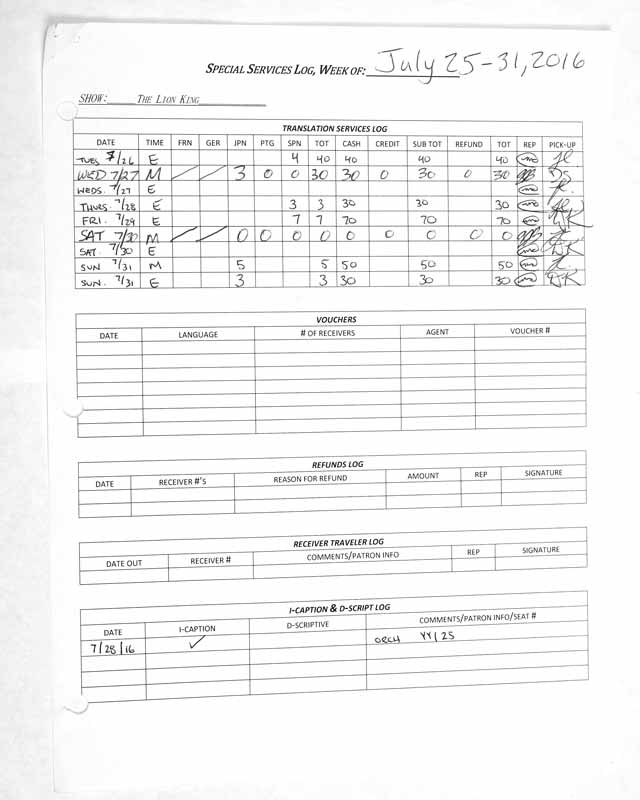 SPECIAL SERVICES LOG, WEEK OF: July 25-31, 2016
SHOW: THE LION KING
TRANSLATION SERVICES LOG
DATE TIME FRN GER JPN PTG SPN TOT CASH CREDIT SUB TOT REFUND TOT REP PICK-UP
TUES 7/26 E 4 40 40 40 40
WED 7/27 M / / 3 0 0 30 30 0 30 0 30 DS
WEDS. 7/27 E
THURS. 7/28 E 3 3 30 30 30
FRI. 7/29 E 7 7 70 70 70 DK
SAT 7/30 M / / 0 0 0 0 0 0 0 0 0
SAT. 7/30 E DK
SUN 7/31 M 5 5 50 50 50
SUN. 7/31 E 3 3 30 30 30 DK
VOUCHERS
DATE LANGUAGE # OF RECEIVERS AGENT VOUCHER #
REFUNDS LOG
DATE RECEIVER #'S REASON FOR REFUND AMOUNT REP SIGNATURE
RECEIVER TRAVELER LOG
DATE OUT RECEIVER # COMMENTS/PATRON INFO REP SIGNATURE
I-CAPTION & D-SCRIPT LOG
DATE I-CAPTION D-SCRIPTIVE COMMENTS/PATRON INFO/SEAT #
7/28/16 ✓ ORCH YY/25